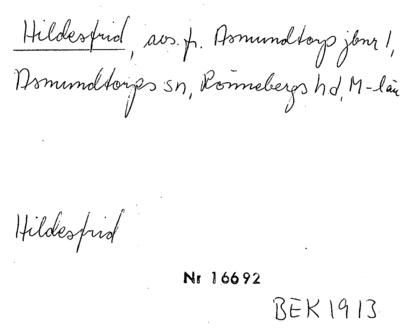 Hildesfrid, avs. fr. Asmundtorp jbnr 1,
Asmundtorps sn, Rönnebergs hd, M-län
Hildesfrid
Nr 16692
BEK 1913